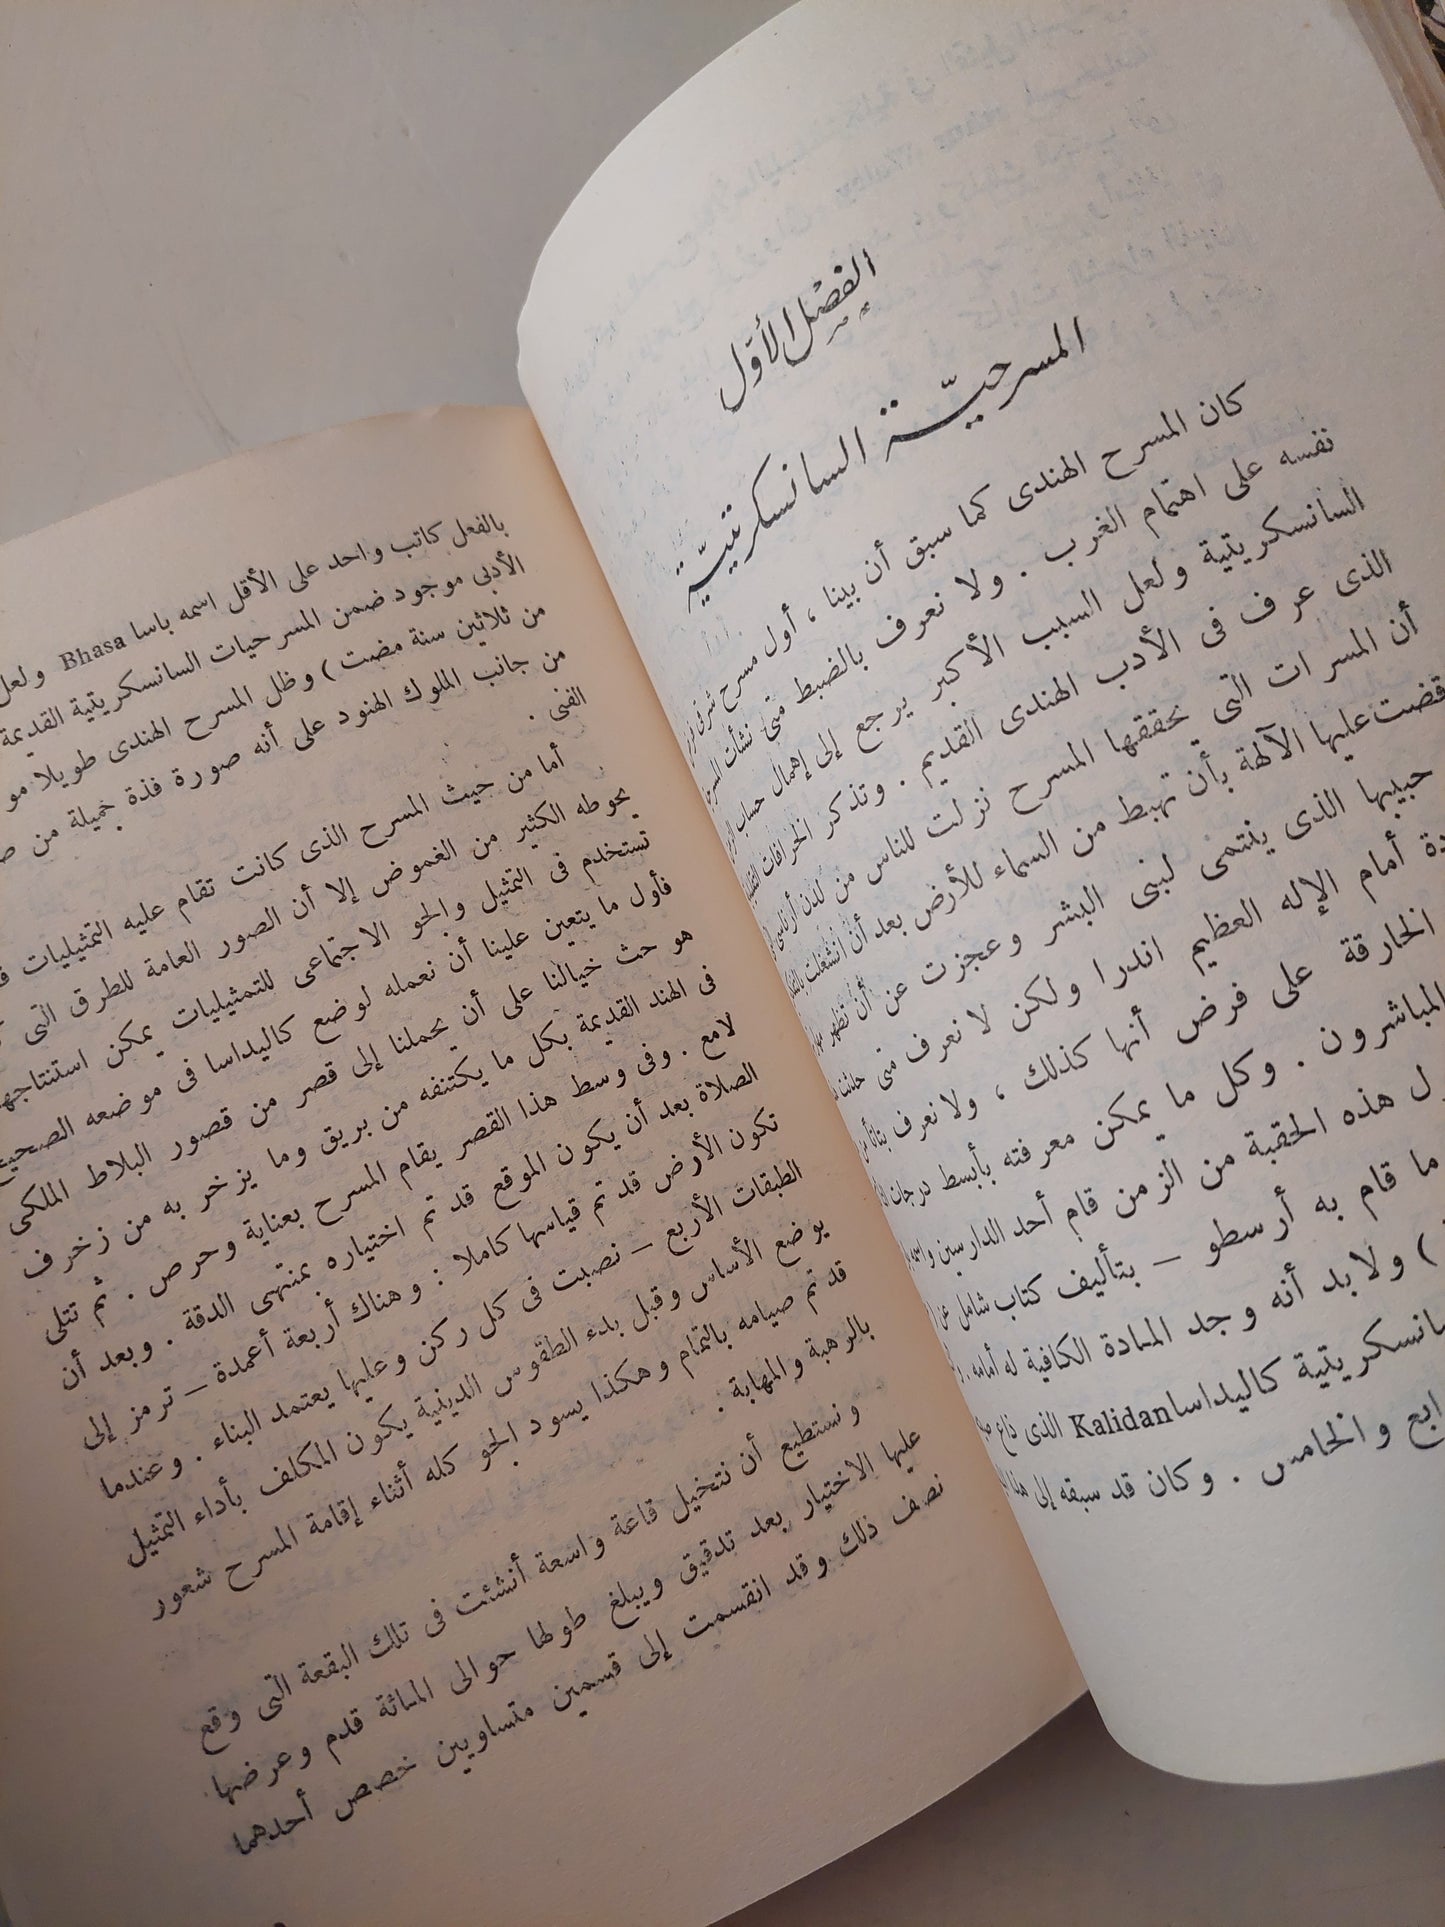 الفصل الأول
المسرحيّة السانسكريتيّة
كان المسرح الهندى كما سبق أن بينا ، أول مسرح شرقى
نفسه على اهتمام الغرب . ولا نعرف بالضبط متى نشأت
السانسكريتية ولعل السبب الأكبر يرجع إلى إهمال حساب
الذى عرف فى الأدب الهندى القديم . وتذكر الخرافات
أن المسرات التى يحققها المسرح نزلت للناس من لدن
قضت عليها الآلهة بأن تهبط من السماء للأرض بعد أن انشغلت
حبيبها الذى ينتمى لبنى البشر وعجزت عن أن تظهر
أمام الإله العظيم اندرا ولكن لا نعرف متى حدثت
الخارقة على فرض أنها كذلك ، ولا نعرف
المباشرون . وكل ما يمكن معرفته بأبسط درجات
هذه الحقبة من الزمن قام أحد الدارسين
ما قام به أرسطو – بتأليف كتاب شامل عن
) ولابد أنه وجد المادة الكافية له أمامه
كاليداسا Kalidan الذى ذاع
والخامس . وكان قد سبقه إلى هذا
بالفعل كاتب واحد على الأقل اسمه باسا Bhasa ولعل
الأدبى موجود ضمن المسرحيات السانسكريتية القديمة
من ثلاثين سنة مضت ) وظل المسرح الهندى طويلا
من جانب الملوك الهنود على أنه صورة فذة جميلة من
الفنى .
أما من حيث المسرح الذى كانت تقام عليه التمثيليات
يحوطه الكثير من الغموض إلا أن الصور العامة للطرق التى
تستخدم فى التمثيل والجو الاجتماعى للتمثيليات يمكن استنتاجها
فأول ما يتعين علينا أن نعمله لوضع كاليداسا فى موضعه الصحيح
هو حث خيالنا على أن يحملنا إلى قصر من قصور البلاط الملكى
فى الهند القديمة بكل ما يكتنفه من بريق وما يزخر به من زخرف
لامع . وفى وسط هذا القصر يقام المسرح بعناية وحرص . ثم تتلى
الصلاة بعد أن يكون الموقع قد تم اختياره بمنتهى الدقة . وبعد أن
تكون الأرض قد تم قياسها كاملا : وهناك أربعة أعمدة – ترمز إلى
الطبقات الأربع – نصبت فى كل ركن وعليها يعتمد البناء . وعندما
يوضع الأساس وقبل بدء الطقوس الدينية يكون المكلف بأداء التمثيل
قد تم صيامه بالتمام وهكذا يسود الجو كله أثناء إقامة المسرح شعور
بالرهبة والمهابة .
ونستطيع أن نتخيل قاعة واسعة أنشئت فى تلك البقعة التى وقع
عليها الاختيار بعد تدقيق ويبلغ طولها حوالى المائة قدم وعرضها
نصف ذلك وقد انقسمت إلى قسمين متساويين خصص أحدهما